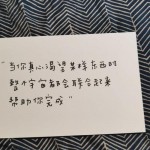 "当你真心渴望某样东西时
整个宇宙都会联合起来
帮助你完成"